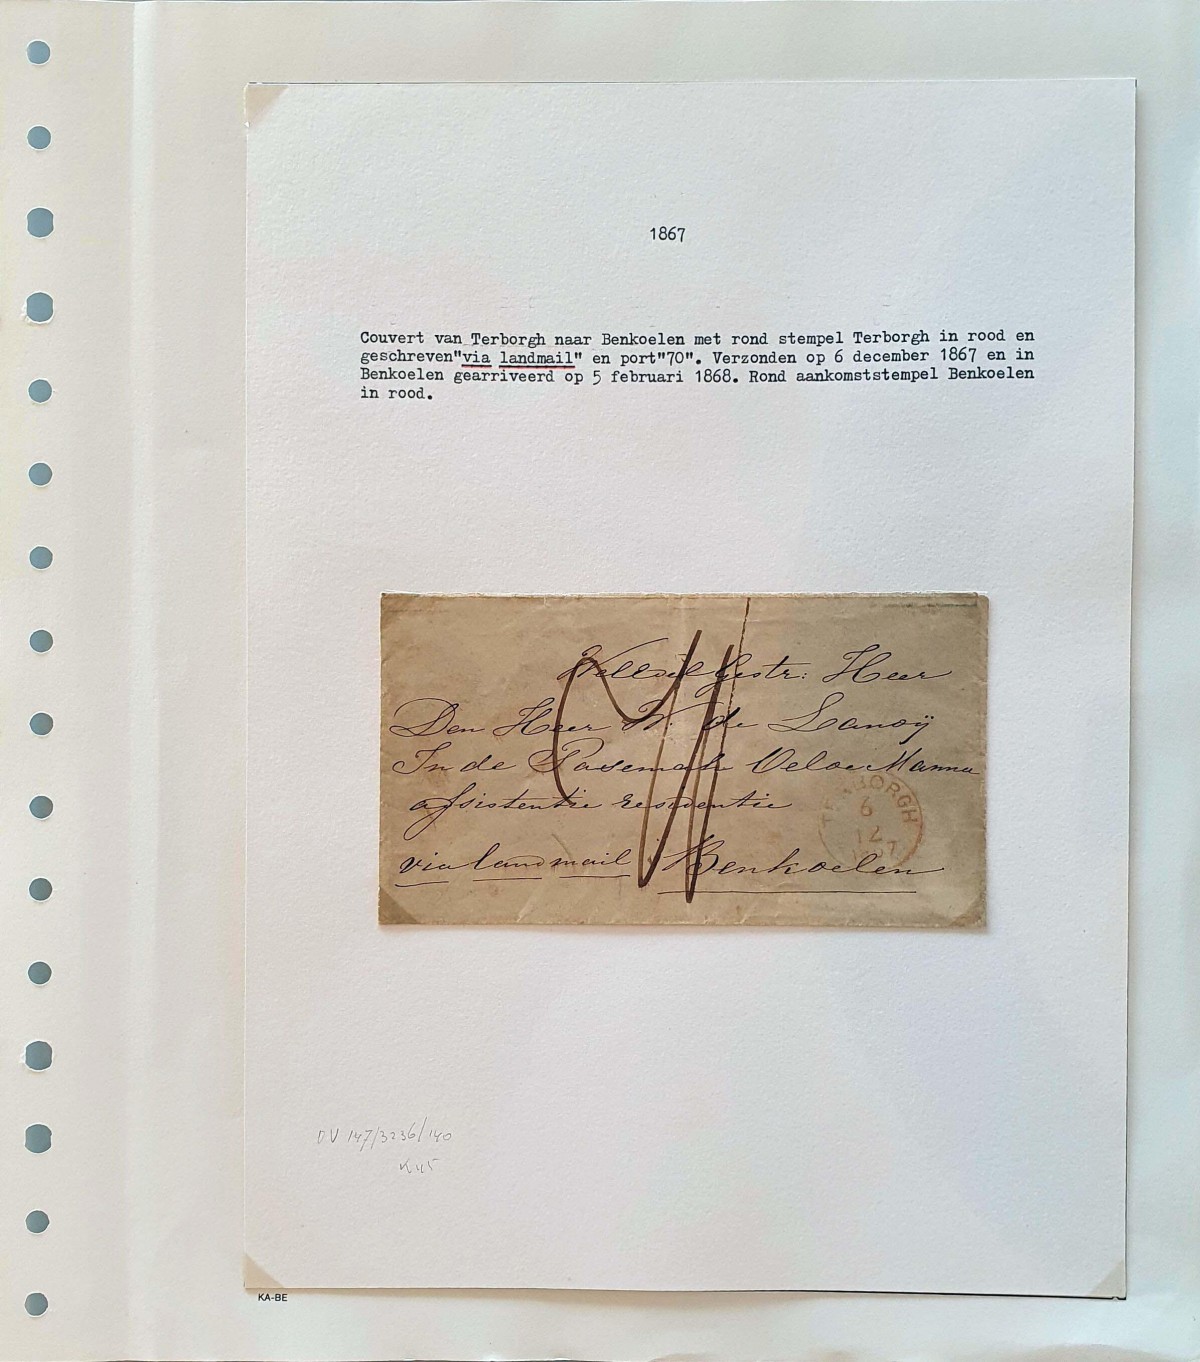 1867
Couvert van Terborgh naar Benkoelen met rond stempel Terborgh in rood en
geschreven"via landmail" en port"70". Verzonden op 6 december 1867 en in
Benkoelen gearriveerd op 5 februari 1868. Rond aankomststempel Benkoelen
in rood.
Gestr: Heer
Den Heer W. de Lanoÿ
In de Pasemah Oeloe Manna
assistentie residentie
via landmail Benkoelen
TERBORGH
6
12
KA-BE